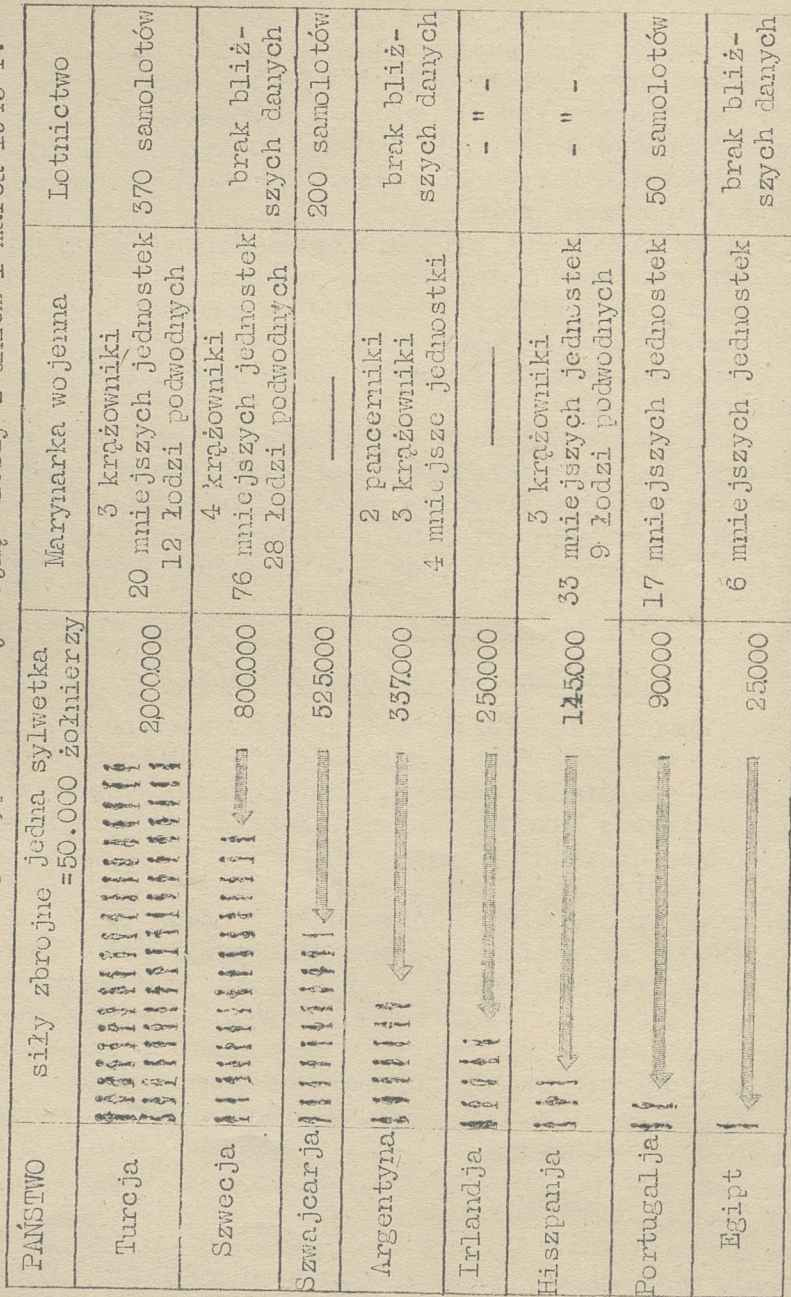 PAŃSTWO siły zbrojne jedna sylwetka =50.000 żołnierzy Marynarka wojenna Lotnictwo
Turcja 2,000.000 3 krążowniki
20 mniejszych jednostek 370 samolotów
12 łodzi podwodnych
Szwecja 800.000 4 krążowniki
76 mniejszych jednostek brak bliż-
28 łodzi podwodnych szych danych
Szwajcarja 525.000 ——— 200 samolotów
Argentyna 337.000 2 pancerniki
3 krążowniki brak bliż-
4 mniejsze jednostki szych danych
Irlandja 250.000 ——— - " -
Hiszpanja 145.000 3 krążowniki
33 mniejszych jednostek - " -
9 łodzi podwodnych
Portugalja 90.000 17 mniejszych jednostek 50 samolotów
Egipt 25.000 6 mniejszych jednostek brak bliż-
szych danych